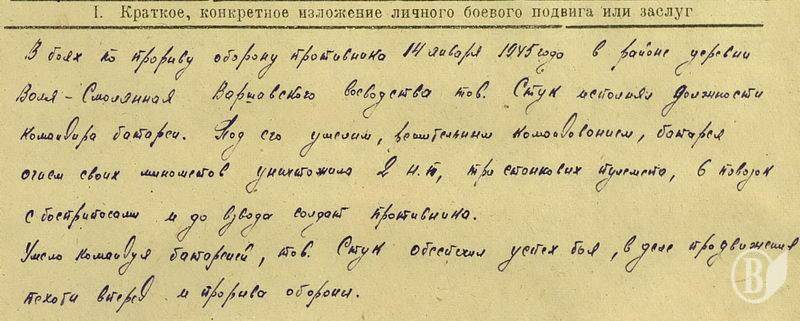 I. Краткое, конкретное изложение личного боевого подвига или заслуг
В боях по прорыву обороны противника 14 января 1945 года в районе деревни
Воля-Смолянная Варшавского воеводства тов. Стук исполнял должности
командира батареи. Под его умелым, решительным командованием, батарея
огнем своих минометов уничтожила 2 н.п, три станковых пулемета, 6 повозок
с боеприпасами и до взвода солдат противника.
Умело командуя батареей, тов. Стук обеспечил успех боя, в деле продвижения
пехоты вперед и прорыва обороны.
В